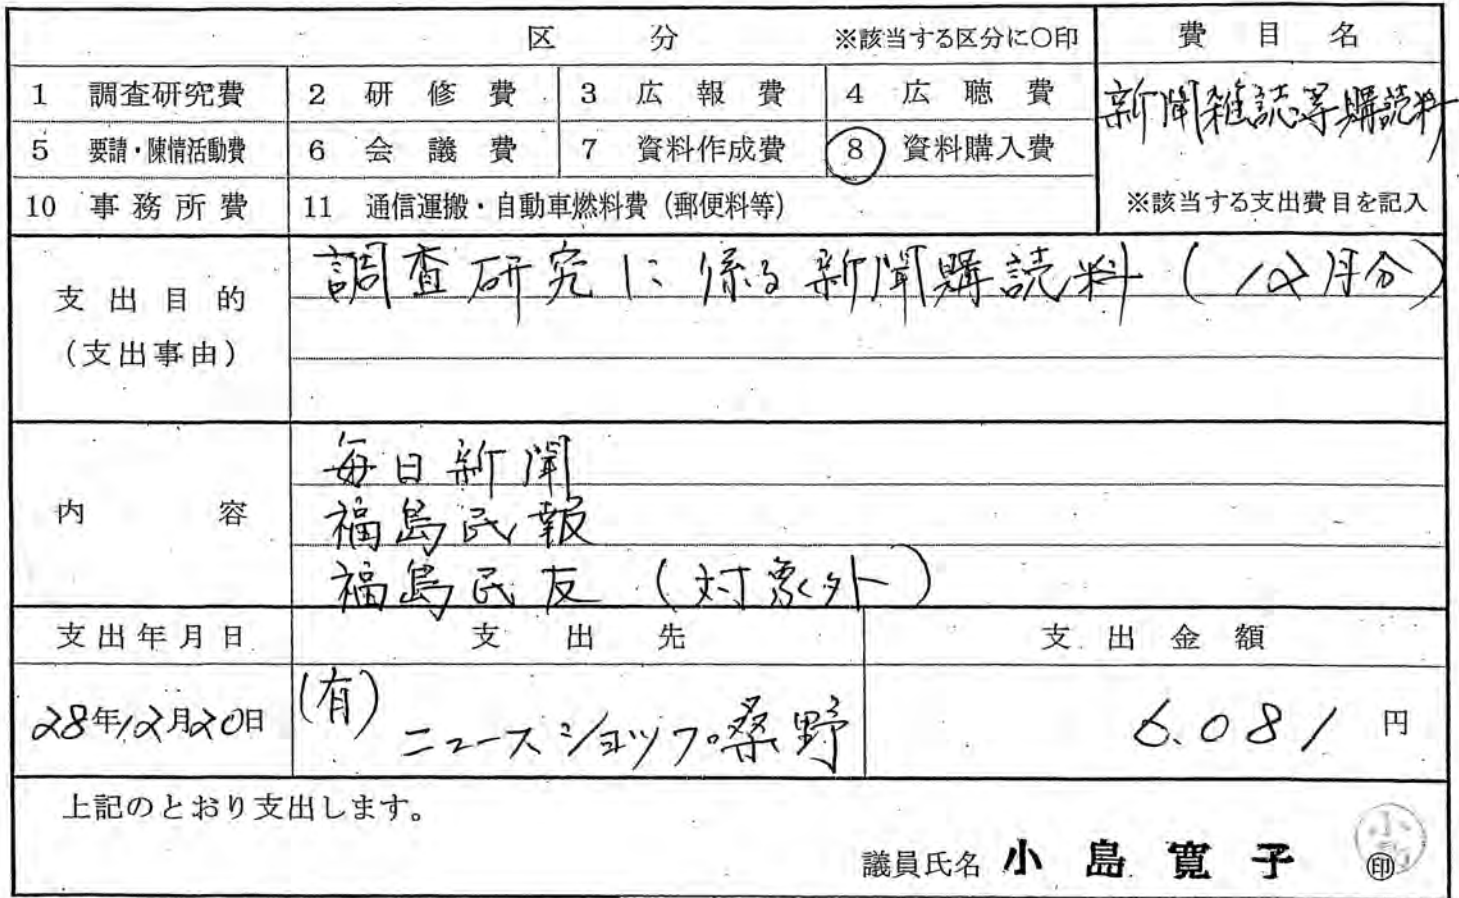 区分 ※該当する区分に○印 費目名
1 調査研究費 2 研修費 3 広報費 4 広聴費
新聞雑誌等購読料
5 要請・陳情活動費 6 会議費 7 資料作成費 8 資料購入費
10 事務所費 11 通信運搬・自動車燃料費（郵便料等）
※該当する支出費目を記入
支出目的
（支出事由）
調査研究に係る新聞購読料（12月分）
内容
毎日新聞
福島民報
福島民友（対象外）
支出年月日 支出先 支出金額
28年12月20日 (有)ニュースショップ桑野 6.081円
上記のとおり支出します。
議員氏名 小島寛子 ㊞